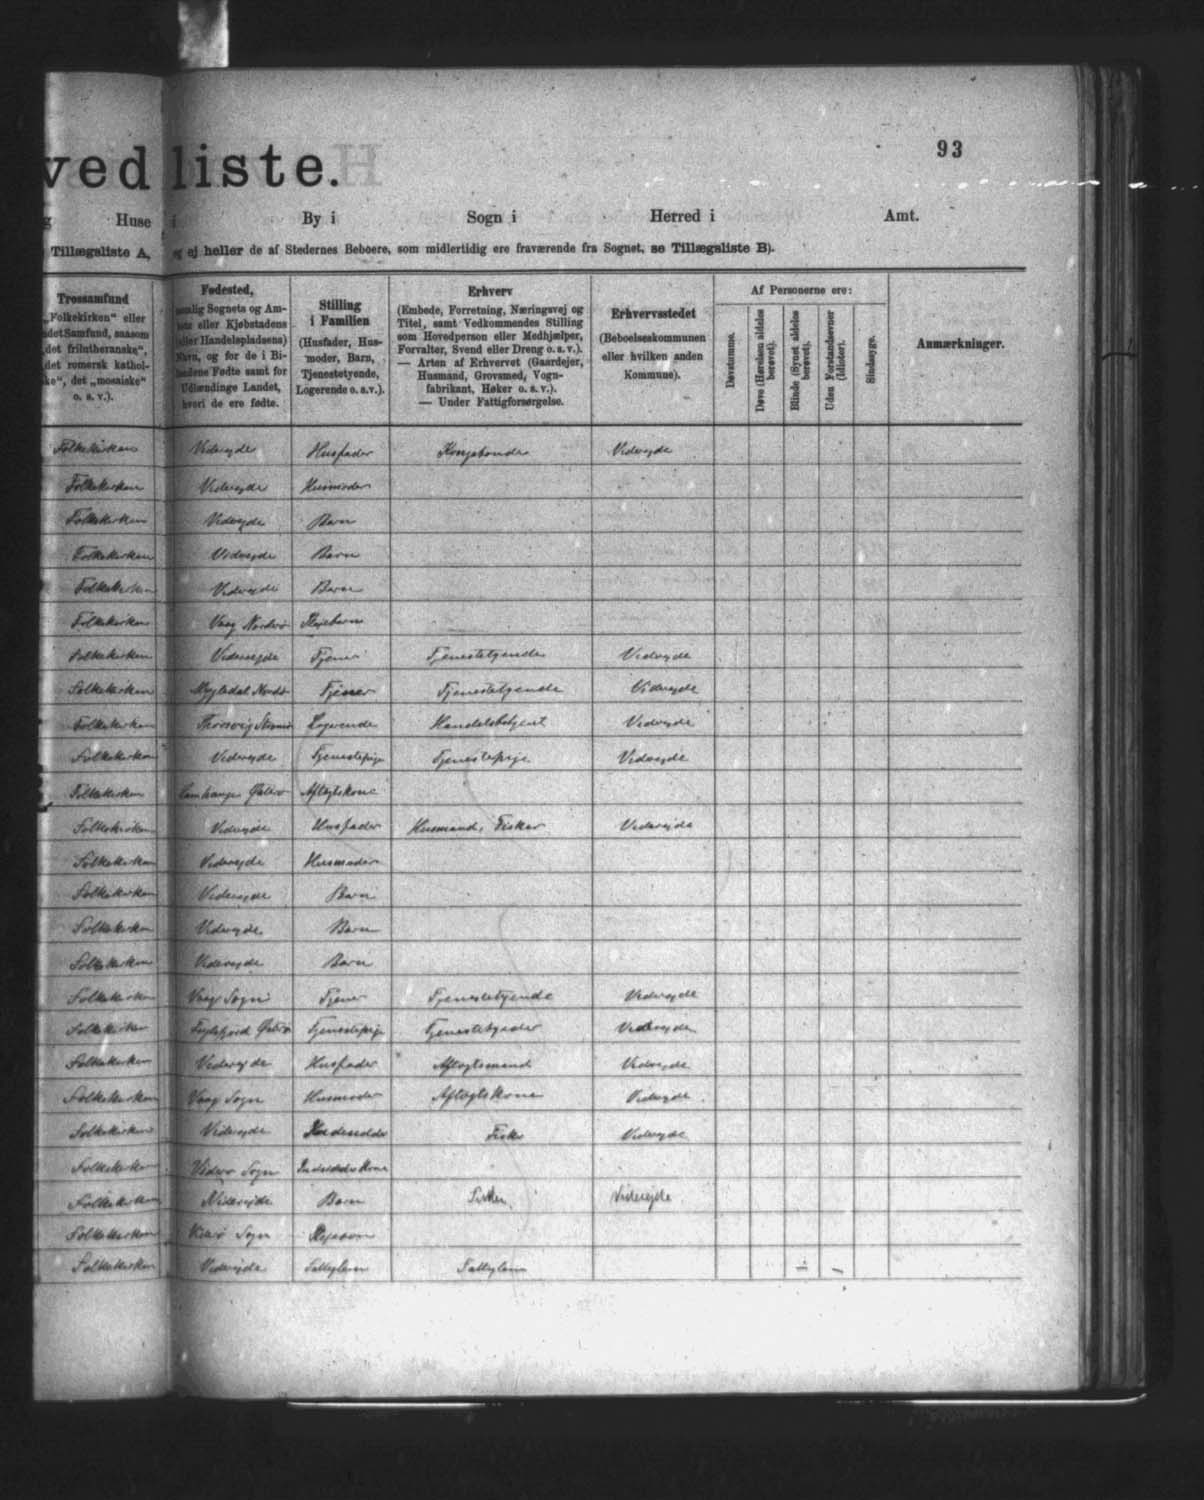 ved liste.
93
Huse i By i Sogn i Herred i Amt.
Tillægsliste A, og ej heller de af Stedernes Beboere, som midlertidig ere fraværende fra Sognet, se Tillægsliste B).
Trossamfund
„Folkekirken“ eller
andet Samfund, saasom
„det frilutheranske“,
det romersk kathol-
ske“, det „mosaiske“
o. s. v.).
Fødested,
nemlig Sognets og Am-
tets eller Kjøbstadens
(eller Handelspladsens)
Navn, og for de i Bi-
landene Fødte samt for
Udlændinge Landet,
hvori de ere fødte.
Stilling
i Familien
(Husfader, Hus-
moder, Barn,
Tjenestetyende,
Logerende o. s. v.).
Erhverv
(Embede, Forretning, Næringsvej og
Titel, samt Vedkommendes Stilling
som Hovedperson eller Medhjælper,
Forvalter, Svend eller Dreng o. s. v.).
— Arten af Erhvervet (Gaardejer,
Husmand, Grovsmed, Vogn-
fabrikant, Høker o. s. v.).
— Under Fattigforsørgelse.
Erhvervsstedet
(Beboelseskommunen
eller hvilken anden
Kommune).
Af Personerne ere:
Døvstumme.
Døve (Hørelsen aldeles
berøvet).
Blinde (Synet aldeles
berøvet).
Uden Forstandsevner
(Idioter).
Sindssyge.
Anmærkninger.
Folkekirken Viderejde Husfader Kongsbonde Viderejde
Folkekirken Viderejde Husmoder
Folkekirken Viderejde Barn
Folkekirken Viderejde Barn
Folkekirken Viderejde Barn
Folkekirken Vaag Norderø Plejebarn
Folkekirken Viderejde Tjener Tjenestetyende Viderejde
Folkekirken Mygledal Tjener Tjenestetyende Viderejde
Folkekirken Thorsvig Logerende Handelsbetjent Viderejde
Folkekirken Viderejde Tjenestepige Tjenestepige Viderejde
Folkekirken Østerø Aftægtskone
Folkekirken Viderejde Husfader Husmand, Fisker Viderejde
Folkekirken Viderejde Husmoder
Folkekirken Viderejde Barn
Folkekirken Viderejde Barn
Folkekirken Viderejde Barn
Folkekirken Vaag Sogn Tjener Tjenestetyende Viderejde
Folkekirken Fuglefjord Østerø Tjenestepige Viderejde
Folkekirken Viderejde Husfader Aftægtsmand Viderejde
Folkekirken Vaag Sogn Husmoder Aftægtskone Viderejde
Folkekirken Viderejde Fisker Viderejde
Folkekirken Viderø Sogn
Folkekirken Viderejde Barn Fisker Viderejde
Folkekirken Sogn
Folkekirken Viderejde